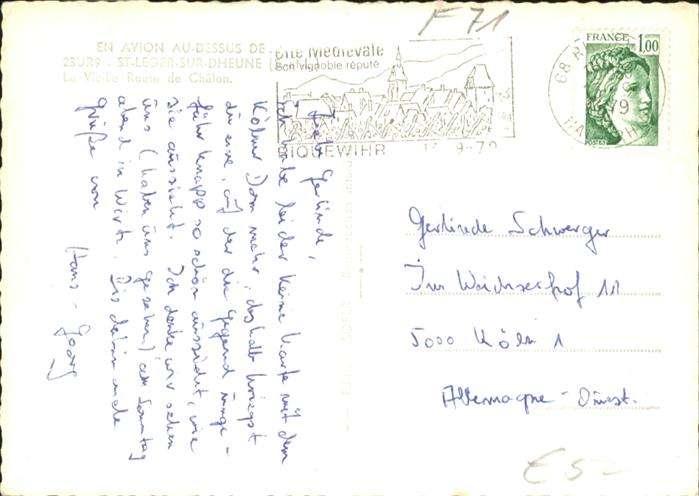 F 71
EN AVION AU-DESSUS DE
28UR9 - ST-LEGER-SUR-DHEUNE
La Vieille Route de Châlon.
Cité Médiévale
Son vignoble réputé
RIQUEWIHR
9-79
68 R
FRANCE 1,00
Liebe Gerlinde,
ich habe leider keine Karte mit dem
Kölner Dom mehr, deshalb kriegst
du eine, auf der die Gegend unge-
fähr knapp so schön aussieht, wie
sie aussieht. Ich denke wir sehen
uns (haben uns gesehen) am Sonntag
abend in Bis dahin
Grüße von
Hans-Georg
Gerlinde Schwerger
Im Weichserhof 11
5000 Köln 1
Allemagne - Ouest.
€ 5-